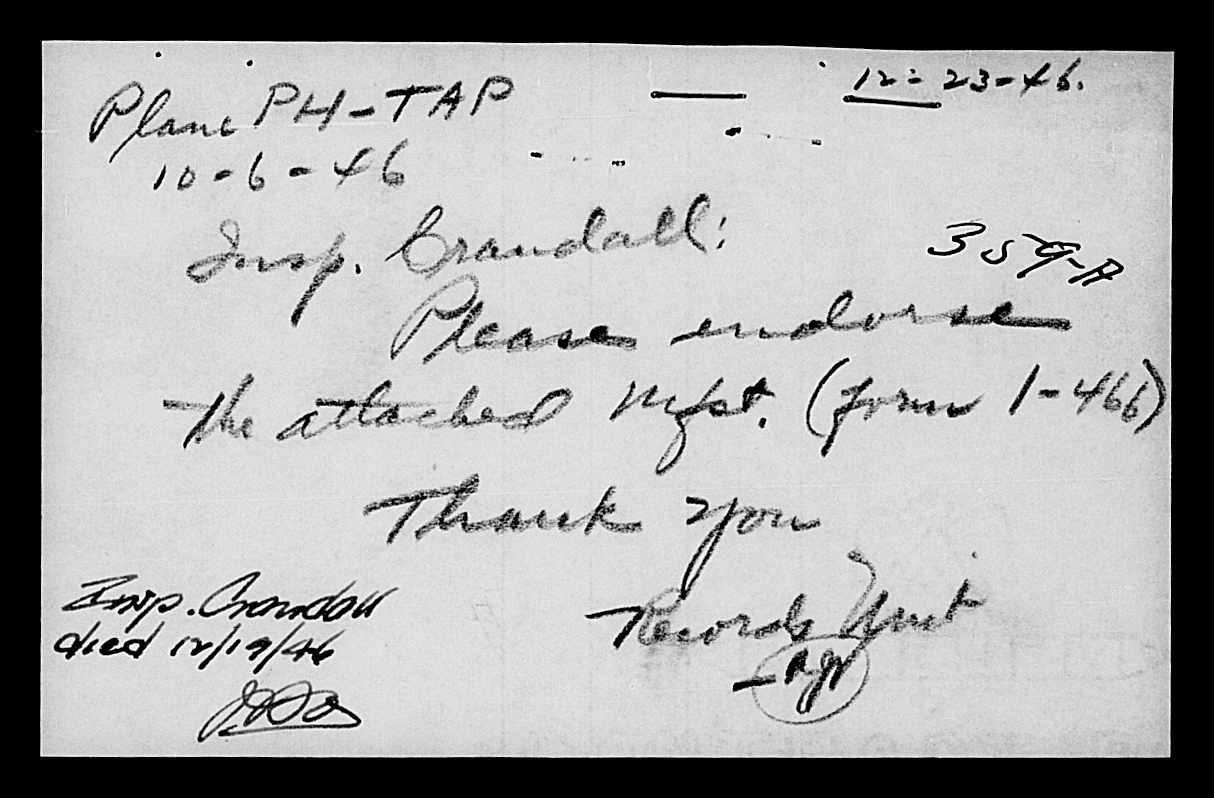 12-23-46.
Plane PH-TAP
10-6-46
Insp. Crandall:
359-A
Please endorse
the attached Mfst. (form 1-466)
Thank you
Records Unit
Insp. Crandall
died 12/19/46